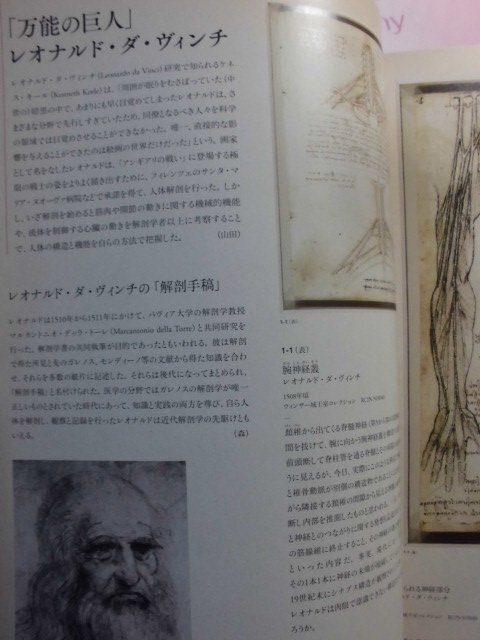 「万能の巨人」
レオナルド・ダ・ヴィンチ
レオナルド・ダ・ヴィンチ (Leonardo da Vinci) 研究で知られるケネ
ス・キール (Kenneth Keele) は、「周囲が眠りをむさぼっていた(中
世の)暗黒の中で、あまりにも早く目覚めてしまったレオナルドは、さ
まざまな分野で先行しすぎていたため、同僚となるべき人々を科学
の領域では目覚めさせることができなかった。唯一、直接的な影
響を与えることができたのは絵画の世界だけだった」という。画家
として名をなしたレオナルドは、「アンギアリの戦い」に登場する極
限の戦士の姿をよりよく描き出すために、フィレンツェのサンタ・マ
リア・ヌオーヴァ病院などで承諾を得て、人体解剖を行った。しか
し、いざ解剖を始めると筋肉や関節の動きに関する機械的機能
や、液体を制御する心臓の動きを解剖学者以上に考察すること
で、人体の構造と機能を自らの方法で把握した。
(山田)
レオナルド・ダ・ヴィンチの「解剖手稿」
レオナルドは1510年から1511年にかけて、パヴィア大学の解剖学教授
マルカントニオ・デッラ・トーレ (Marcantonio della Torre) と共同研究を
行った。解剖学書の共同執筆が目的であったともいわれる。彼は解剖
で得た所見と先のガレノス、モンディーノ等の文献から得た知識を合わ
せ、それらを多数の紙片に記述した。それらは後代になってまとめられ、
「解剖手稿」と名付けられた。医学の分野ではガレノスの解剖学が唯一
正しいものとされていた時代にあって、知識と実践の両方を尊び、自ら人
体を解剖し、観察と記録を行ったレオナルドは近代解剖学の先駆けとも
いえる。
(森)
1-1(表)
1-1(表)
腕神経叢
レオナルド・ダ・ヴィンチ
1508年頃
ウィンザー城王室コレクション
頚椎から出てくる脊髄神経
間を抜けて、腕に向かう腕神経叢
前額断して脊柱管を通る脊髄とその
うに見えるが、今日、実際にこのような
と椎骨動脈が別個の構造物である
がら隣接する頚椎の間隙から
断し内部を推測したものと思われる。
と神経とのつながりに関する
の筋線維に終止すること、その
といった内容だ。事実、現代
その1本1本に神経の末端が
19世紀末にシナプス構造が
レオナルドは肉眼で認識できない
ろうか。
られる神経部分